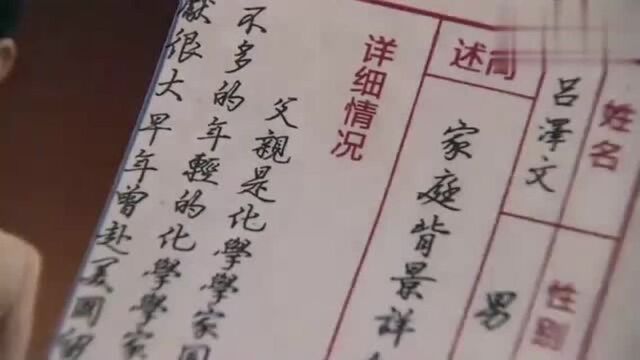 姓名
呂澤文
性别
男
简述
家庭背景詳
详细情况
父親是化學學家
不多的年輕的化學學家
献很大早年曾赴美国留